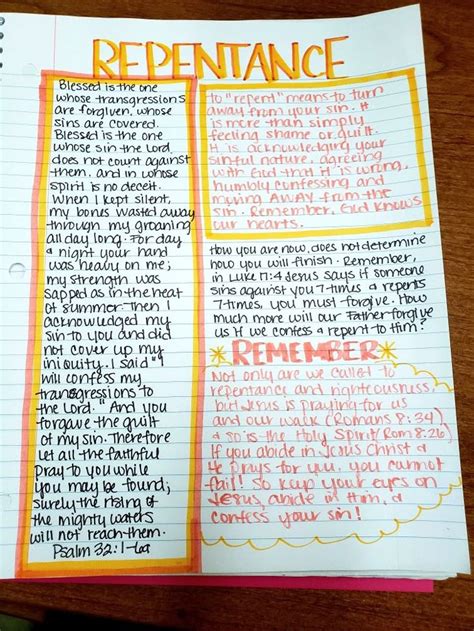 REPENTANCE
Blessed is the one
whose transgressions
are forgiven, whose
sins are covered.
Blessed is the one
whose sin the Lord
does not count against
them, and in whose
spirit is no deceit.
When I kept silent,
my bones wasted away
through my groaning
all day long. For day
& night your hand
was heavy on me;
my strength was
sapped as in the heat
of summer. Then I
acknowledged my
sin to you and did
not cover up my
iniquity. I said "I
will confess my
transgressions to
the Lord." And you
forgave the guilt
of my sin. Therefore
let all the faithful
Pray to you while
you may be found;
surely the rising of
the mighty waters
will not reach them.
Psalm 32:1-6a
to "repent" means to turn
away from your sin. It
is more than simply
feeling shame or guilt.
It is acknowledging your
sinful nature, agreeing
with God that it is wrong,
humbly confessing and
moving AWAY from the
sin. Remember, God knows
our hearts.
How you are now, does not determine
how you will finish. Remember,
in Luke 17:4 Jesus says if someone
sins against you 7-times & repents
7-times, you must forgive. How
much more will our Father forgive
us if we confess & repent to Him?
*REMEMBER*
Not only are we called to
repentance and righteousness,
but Jesus is praying for us
and our walk (Romans 8:34)
& so is the Holy Spirit (Rom 8:26)
If you abide in Jesus Christ &
He prays for you, you cannot
fail! So keep your eyes on
Jesus, abide in Him, &
confess your sin!